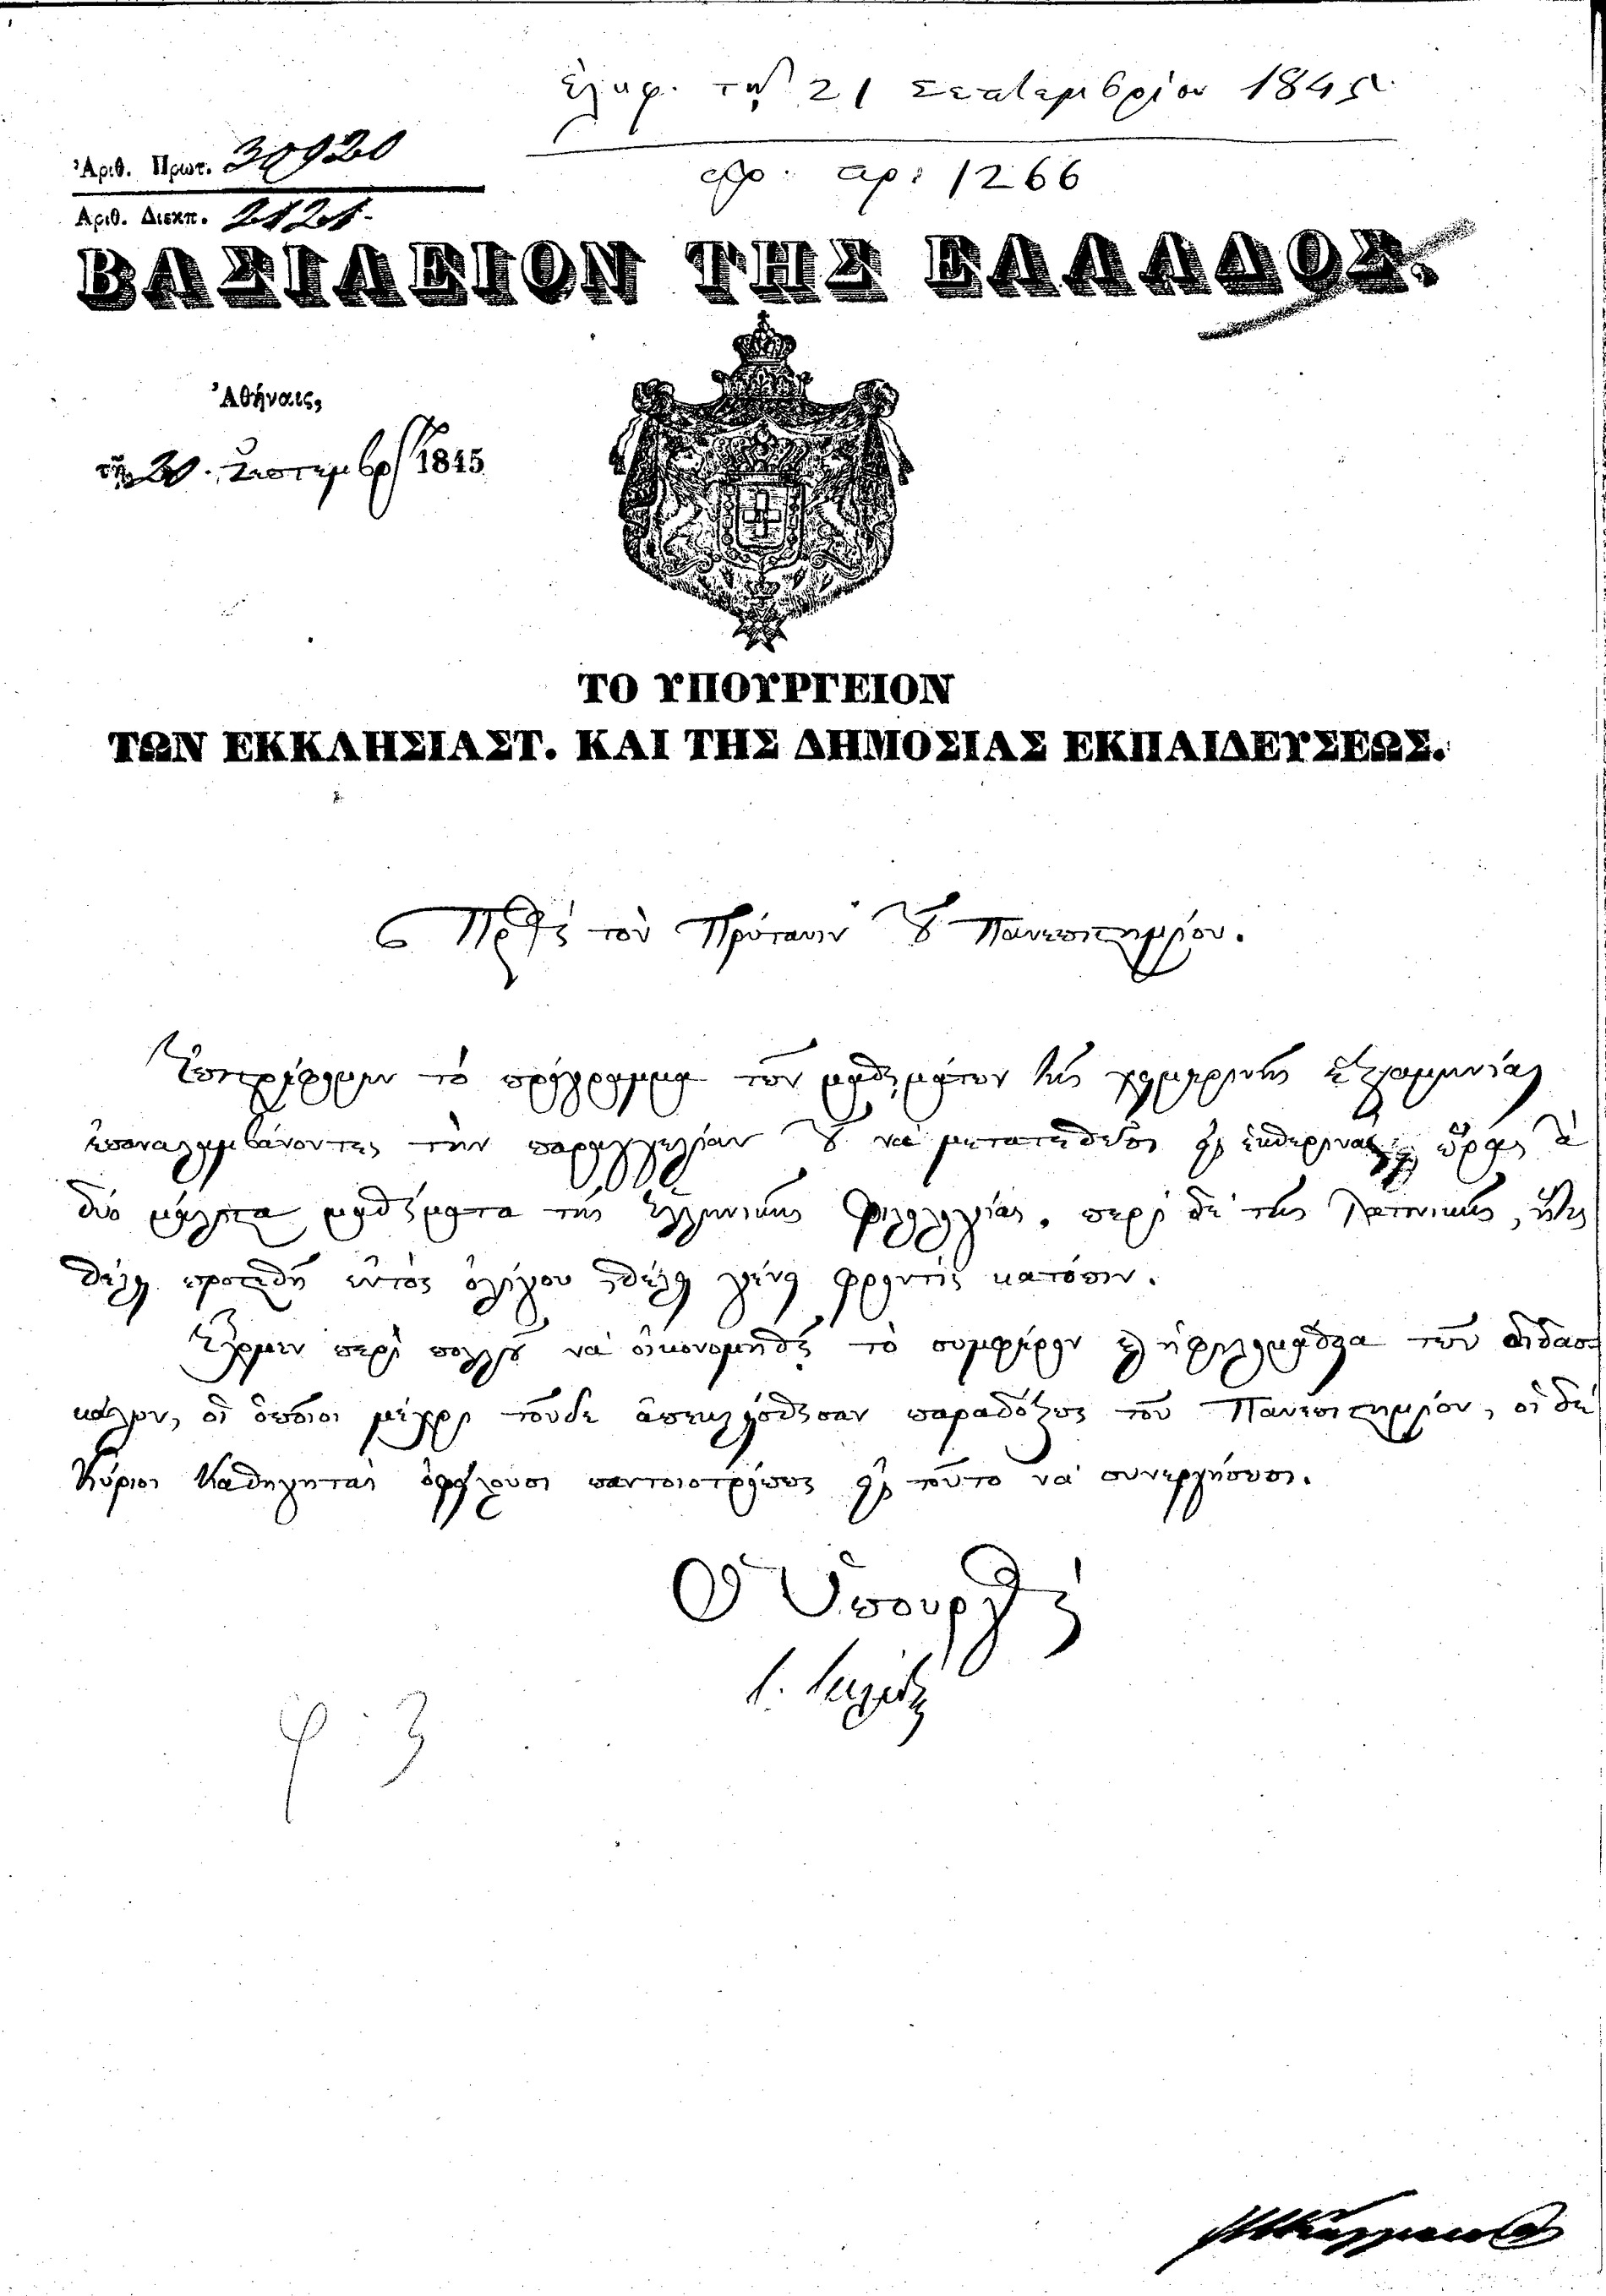 ἐλήφ. τῇ 21 Σεπτεμβρίου 1845
Ἀριθ. Πρωτ. 30920
ἀρ: 1266
Ἀριθ. Διεκπ. 2121
ΒΑΣΙΛΕΙΟΝ ΤΗΣ ΕΛΛΑΔΟΣ.
Ἀθήναις,
τῇ 20. Σεπτεμβρ 1845
ΤΟ ΥΠΟΥΡΓΕΙΟΝ
ΤΩΝ ΕΚΚΛΗΣΙΑΣΤ. ΚΑΙ ΤΗΣ ΔΗΜΟΣΙΑΣ ΕΚΠΑΙΔΕΥΣΕΩΣ.
Πρὸς τὸν Πρύτανιν τοῦ Πανεπιστημίου.
Ἐπιστρέφομεν τὸ πρόγραμμα τῶν μαθημάτων τῆς χειμερινῆς ἑξαμηνίας
ἐπαναλαμβάνοντες τὴν παραγγελίαν τοῦ νὰ μετατεθῶσι εἰς ἑσπερινὰς ὥρας τὰ
δύο μάλιστα μαθήματα τῆς Ἑλληνικῆς Φιλολογίας. περὶ δὲ τῆς Λατινικῆς, ἥτις
θέλει προστεθῆ ἐντὸς ὀλίγου θέλει γένει φροντὶς κατόπιν.
Ἔχομεν περὶ πολλοῦ νὰ οἰκονομηθῇ τὸ συμφέρον καὶ ἡ φιλομάθεια τῶν διδασ-
κάλων, οἱ ὁποῖοι μέχρι τοῦδε ἀπεκλείσθησαν παραδόξως τοῦ Πανεπιστημίου, οἱ δὲ
Κύριοι Καθηγηταὶ ὀφείλουσι παντοιοτρόπως εἰς τοῦτο νὰ συνεργήσωσι.
Ὁ Ὑπουργὸς
Ι. Κωλέττης
φ: 3